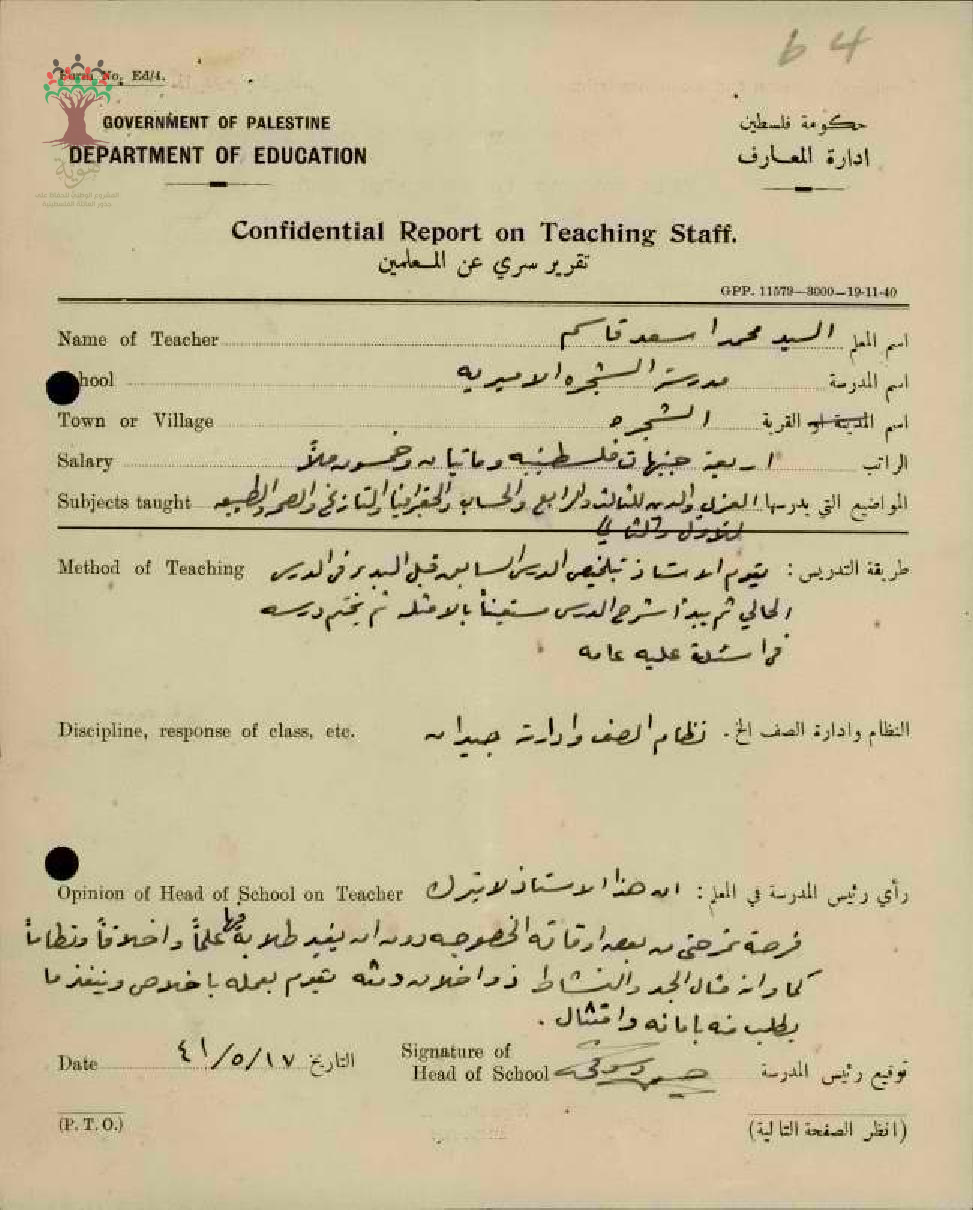 64
Form No. Ed/4.
GOVERNMENT OF PALESTINE
حكومة فلسطين
DEPARTMENT OF EDUCATION
ادارة المعارف
Confidential Report on Teaching Staff.
تقرير سري عن المعلمين
GPP. 11579—3000—19-11-40
Name of Teacher السيد محمد اسعد قاسم اسم المعلم
hool مدرسة الشجره الاميريه اسم المدرسة
Town or Village الشجره اسم المدينة او القرية
Salary اربعة جنيهات فلسطينيه ومائتان وخمسون ملاً الراتب
Subjects taught المواضيع التي يدرسها العربي والدين للثالث والرابع والحساب والجغرافيا والتاريخ والصحه والطبيعه
للاول والثاني
Method of Teaching طريقة التدريس : يقوم الاستاذ بتلخيص الدرس السابق قبل البدء في الدرس
الحالي ثم يبدأ شرح الدرس مستعيناً بالامثله ثم يختم درسه
في اسئلة عليه عامه
Discipline, response of class, etc. النظام وادارة الصف الخ . نظام الصف وادارته جيدان
Opinion of Head of School on Teacher رأي رئيس المدرسة في المعلم : ان هذا الاستاذ لا يترك
فرصة تمر حتى من بعض اوقاته الخصوصيه دون ان يفيد طلابه فيها علماً واخلاقاً ونظاماً
كما وانه مثال الجد والنشاط ذو اخلاق دمثه يقوم بعمله باخلاص وينفذ ما
يطلب منه بامانه وامتثال .
Date ٤١/٥/١٧ التاريخ
Signature of
Head of School توقيع رئيس المدرسة
(P. T. O.) (انظر الصفحة التالية)